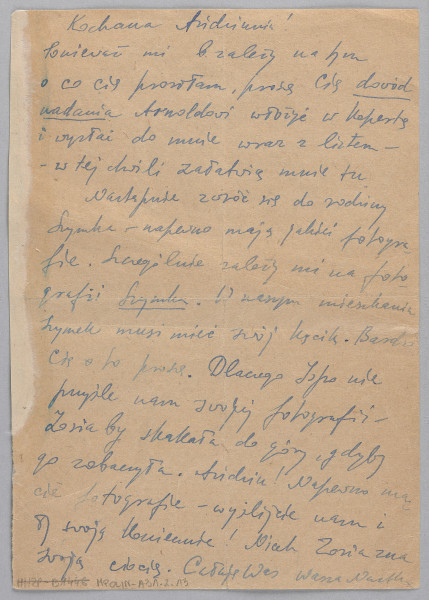 Kochana Andziuniu!
Ponieważ mi b. zależy na tym
o co cię prosiłam, proszę Cię dowód
nadania Arnoldowi włożyć w kopertę
i wysłać do mnie wraz z listem -
- w tej chwili załatwią mnie tu
Następnie zwróć się do rodziny
Szymka - napewno mają jakieś fotogra-
fie. Szczególnie zależy mi na foto-
grafii Szymka. W naszym mieszkaniu
Szymek musi mieć swój kącik. Bardzo
Cię o to proszę. Dlaczego nie
przyśle nam swojej fotografii -
Zosia by skakała do góry, gdyby
go zobaczyła. Andziu! Napewno ma
cie fotografie - wyślijcie nam i
Ty swoją koniecznie! Niech Zosia zna
swoją ciocię. Całuję Was Wasza